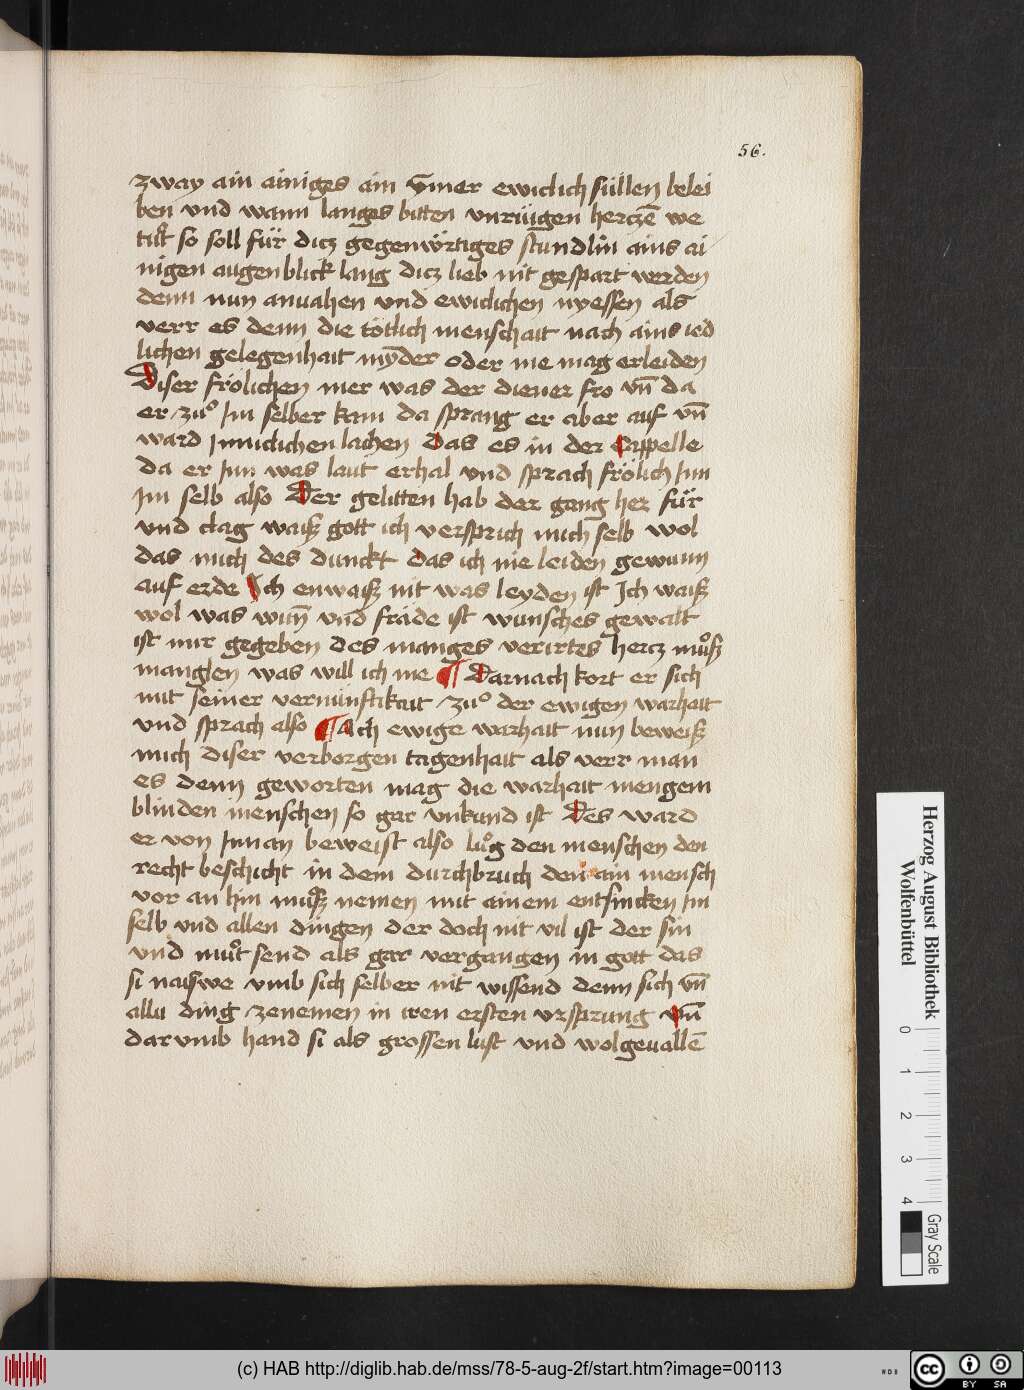 56.
zway ain ainiges ain ymer ewiclich süllen belei
ben vnd wann langes bitten vnrüigen herczē we
tůt so soll für dicz gegenwirtiges stundlin ains ai
nigen augenblick lang dicz lieb nit gespart werden
denn nun anuahen vnd ewiclichen nyessen als
verr es denn die tötlich menschait nach ains ied
lichen gelegenhait mynder oder me mag erleiden
Diser frölichen mer was der diener fro vn̄ da
er zuͦ Im selber kam da sprang er aber auf vn̄
ward Inniclichen lachen Das es in der Cappelle
da er Inn was laut erhal vnd sprach frölich Inn
Im selb also Der gelitten hab der gang her für
vnd clag waiß gott ich versprich mich selb wol
das mich des dunckt das ich nie leiden gewunn
auf erde Ich enwaiß nit was leyden ist Ich waiß
wol was wun̄ vnd fräde ist wunsches gewalt
ist mir gegeben des manges verirtes hercz můß
manglen was will ich me ¶ Darnach kort er sich
mit seiner vernünftikait zuͦ der ewigen warhait
vnd sprach also ¶ Ach ewige warhait nun beweiß
mich diser verborgen tagenhait als verr man
es denn geworten mag die warhait mengem
blinden menschen so gar vnkund ist Des ward
er von Innan beweist also luͦg den menschen den
recht beschicht in dem durchbruch den ain mensch
vor an hin můß nemen mit ainem entsincken Im
selb vnd allen dingen der doch nit vil ist der sin
vnd můt send als gar vergangen in gott das
si naißwe vmb sich selber nit wissend denn sich vn̄
allu ding zenemen in iren ersten vrsprung vn̄
darvmb hand si als grossen lust vnd wolgeuallē
Herzog August Bibliothek
Wolfenbüttel
0 1 2 3 4
Gray Scale
(c) HAB http://diglib.hab.de/mss/78-5-aug-2f/start.htm?image=00113
cc BY SA